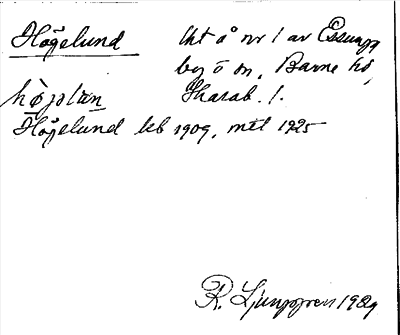 Högelund
Utå nr 1 av Essunga
by o sn, Barne hd,
Skarab. l.
Högelund kb 1909, mtl 1925
R. Ljunggren 1929